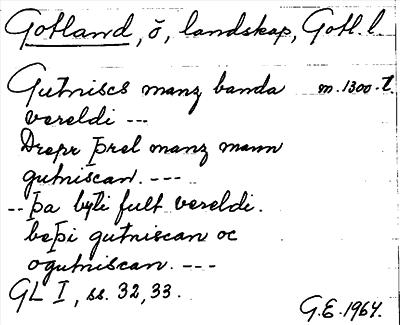 Gotland, ö, landskap, Gotl. l.
Gutniscs manz banda m. 1300-t.
vereldi ---
Drepr þrel manz mann
gutniscan. ---
-- þa byti fult vereldi.
beþi gutniscan oc
ogutniscan. ---
GL I, ss. 32, 33.
G.E. 1964.